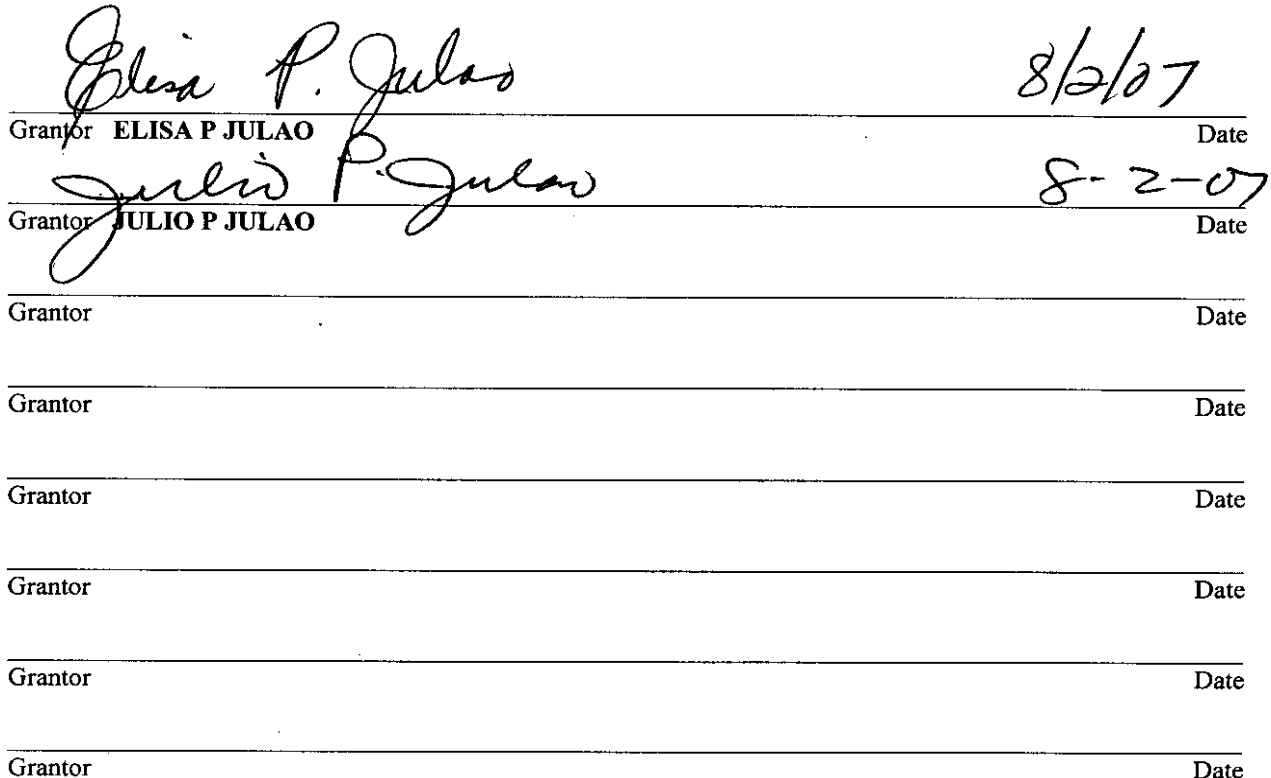 Elisa P. Julao 8/2/07
Grantor ELISA P JULAO Date
Julio P. Julao 8-2-07
Grantor JULIO P JULAO Date
Grantor Date
Grantor Date
Grantor Date
Grantor Date
Grantor Date
Grantor Date